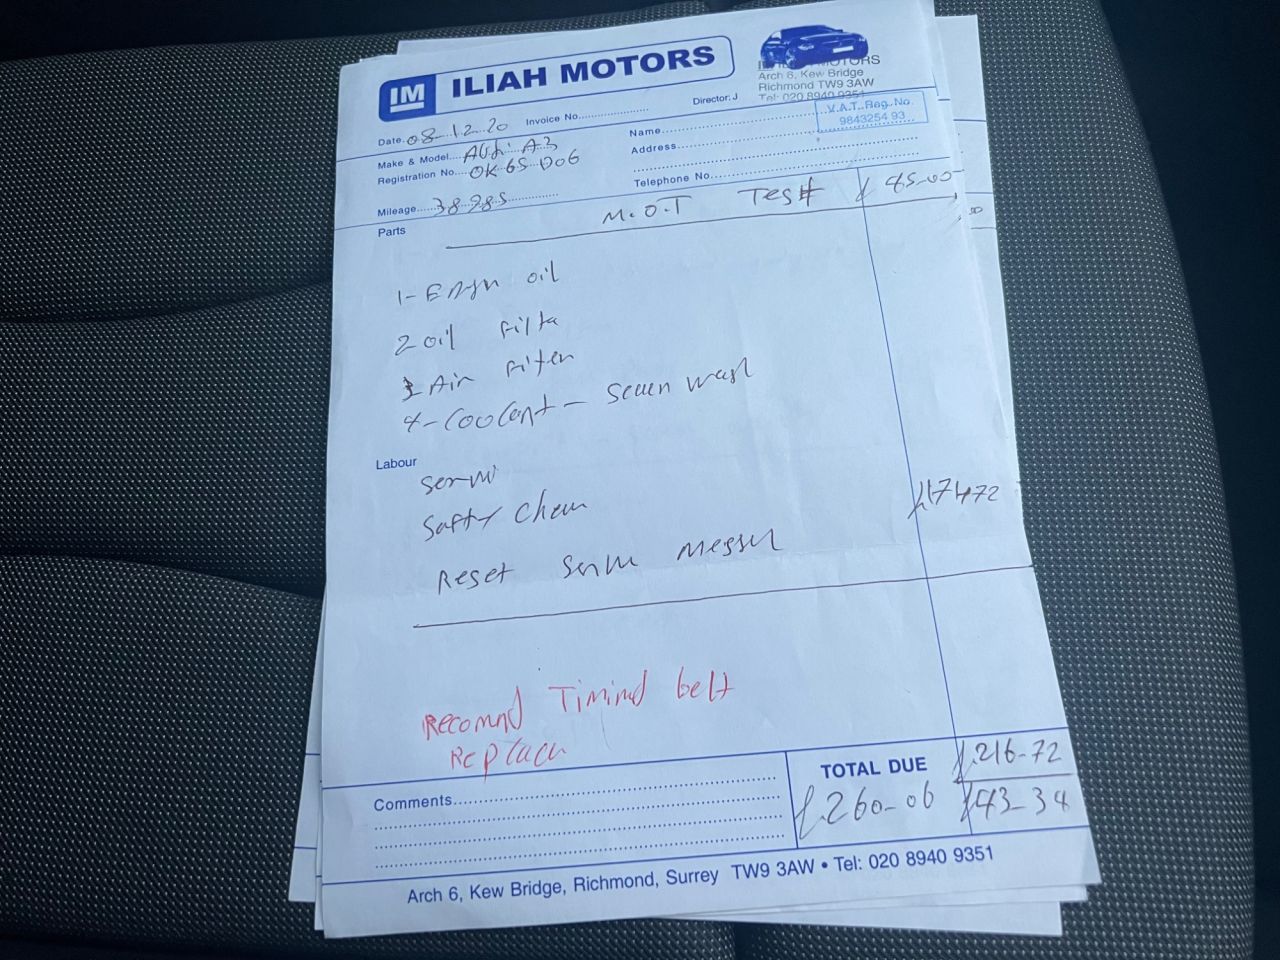 IM ILIAH MOTORS
ILIAH MOTORS
Arch 6, Kew Bridge
Richmond TW9 3AW
Tel: 020 8940 9351
Director: J
V.A.T. Reg. No.
9843254 93
Date. 08-12-20 Invoice No.
Name
Make & Model Audi A3
Address
Registration No. OK65 DO6
Telephone No.
Mileage 38985
M.O.T Test £ 45-00
Parts
1- Engn oil
2 oil filte
3 Air filter
4- Coolant - Screen wash
Labour
Servi
Safty Chem
£174-72
Reset Servi messu
Recomnd Timind belt
Replace
TOTAL DUE £216-72
Comments
£260-06 £43-34
Arch 6, Kew Bridge, Richmond, Surrey TW9 3AW • Tel: 020 8940 9351